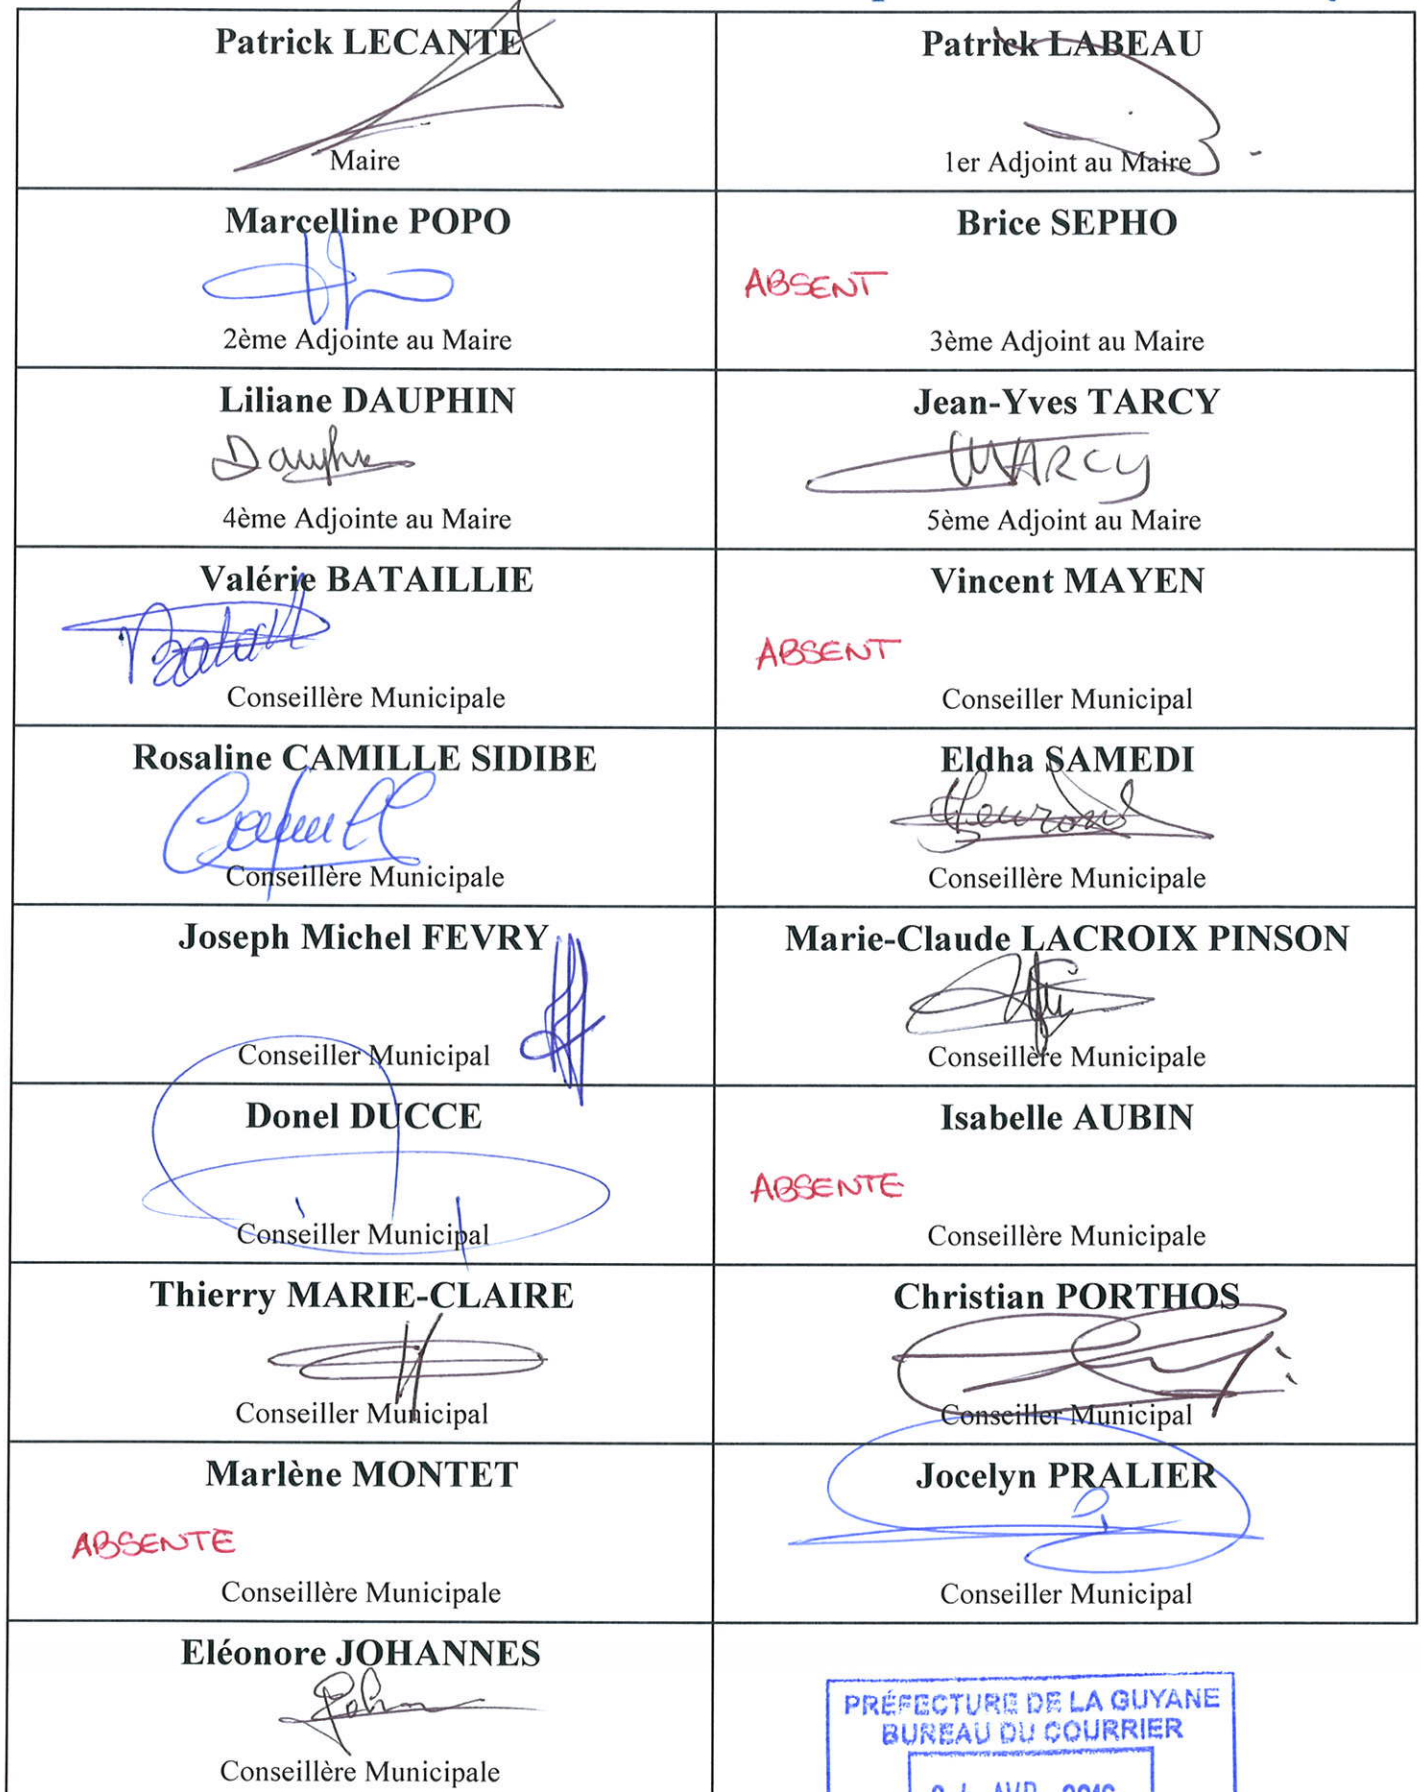 Patrick LECANTE
Maire
Patrick LABEAU
1er Adjoint au Maire
Marcelline POPO
2ème Adjointe au Maire
Brice SEPHO
ABSENT
3ème Adjoint au Maire
Liliane DAUPHIN
4ème Adjointe au Maire
Jean-Yves TARCY
5ème Adjoint au Maire
Valérie BATAILLIE
Conseillère Municipale
Vincent MAYEN
ABSENT
Conseiller Municipal
Rosaline CAMILLE SIDIBE
Conseillère Municipale
Eldha SAMEDI
Conseillère Municipale
Joseph Michel FEVRY
Conseiller Municipal
Marie-Claude LACROIX PINSON
Conseillère Municipale
Donel DUCCE
Conseiller Municipal
Isabelle AUBIN
ABSENTE
Conseillère Municipale
Thierry MARIE-CLAIRE
Conseiller Municipal
Christian PORTHOS
Conseiller Municipal
Marlène MONTET
ABSENTE
Conseillère Municipale
Jocelyn PRALIER
Conseiller Municipal
Eléonore JOHANNES
Conseillère Municipale
PRÉFECTURE DE LA GUYANE
BUREAU DU COURRIER
AVR